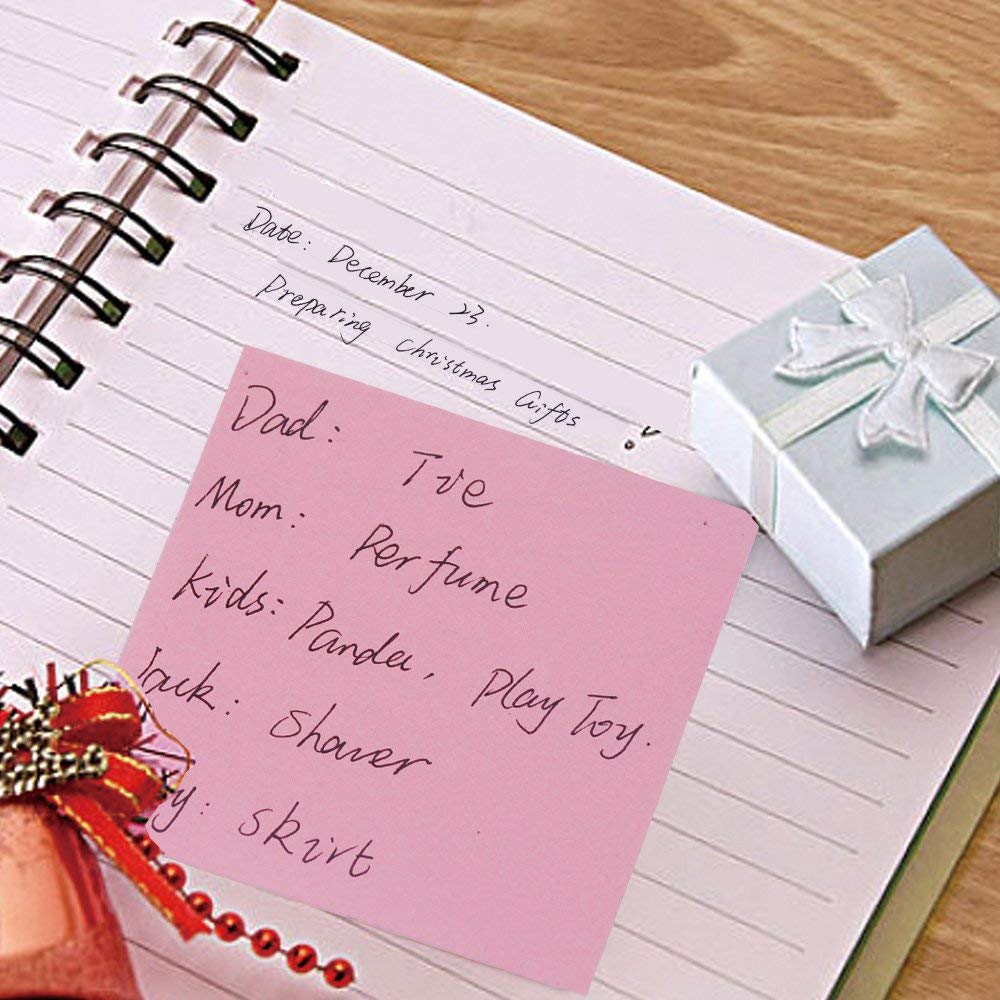 Date: December 23.
Preparing christmas Gifts
Dad: Tie
Mom: Perfume
Kids: Panda, Play Toy.
Jack: Shaver
skirt